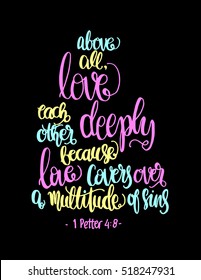 above
all,
love
each
other deeply
because
love covers over
a multitude of sins
- 1 Petter 4:8 -
518247931